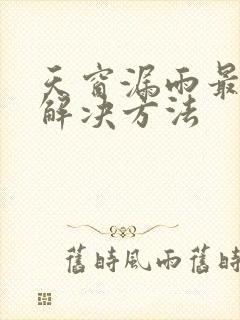 天窗漏雨最
解决方法
舊時風雨舊時